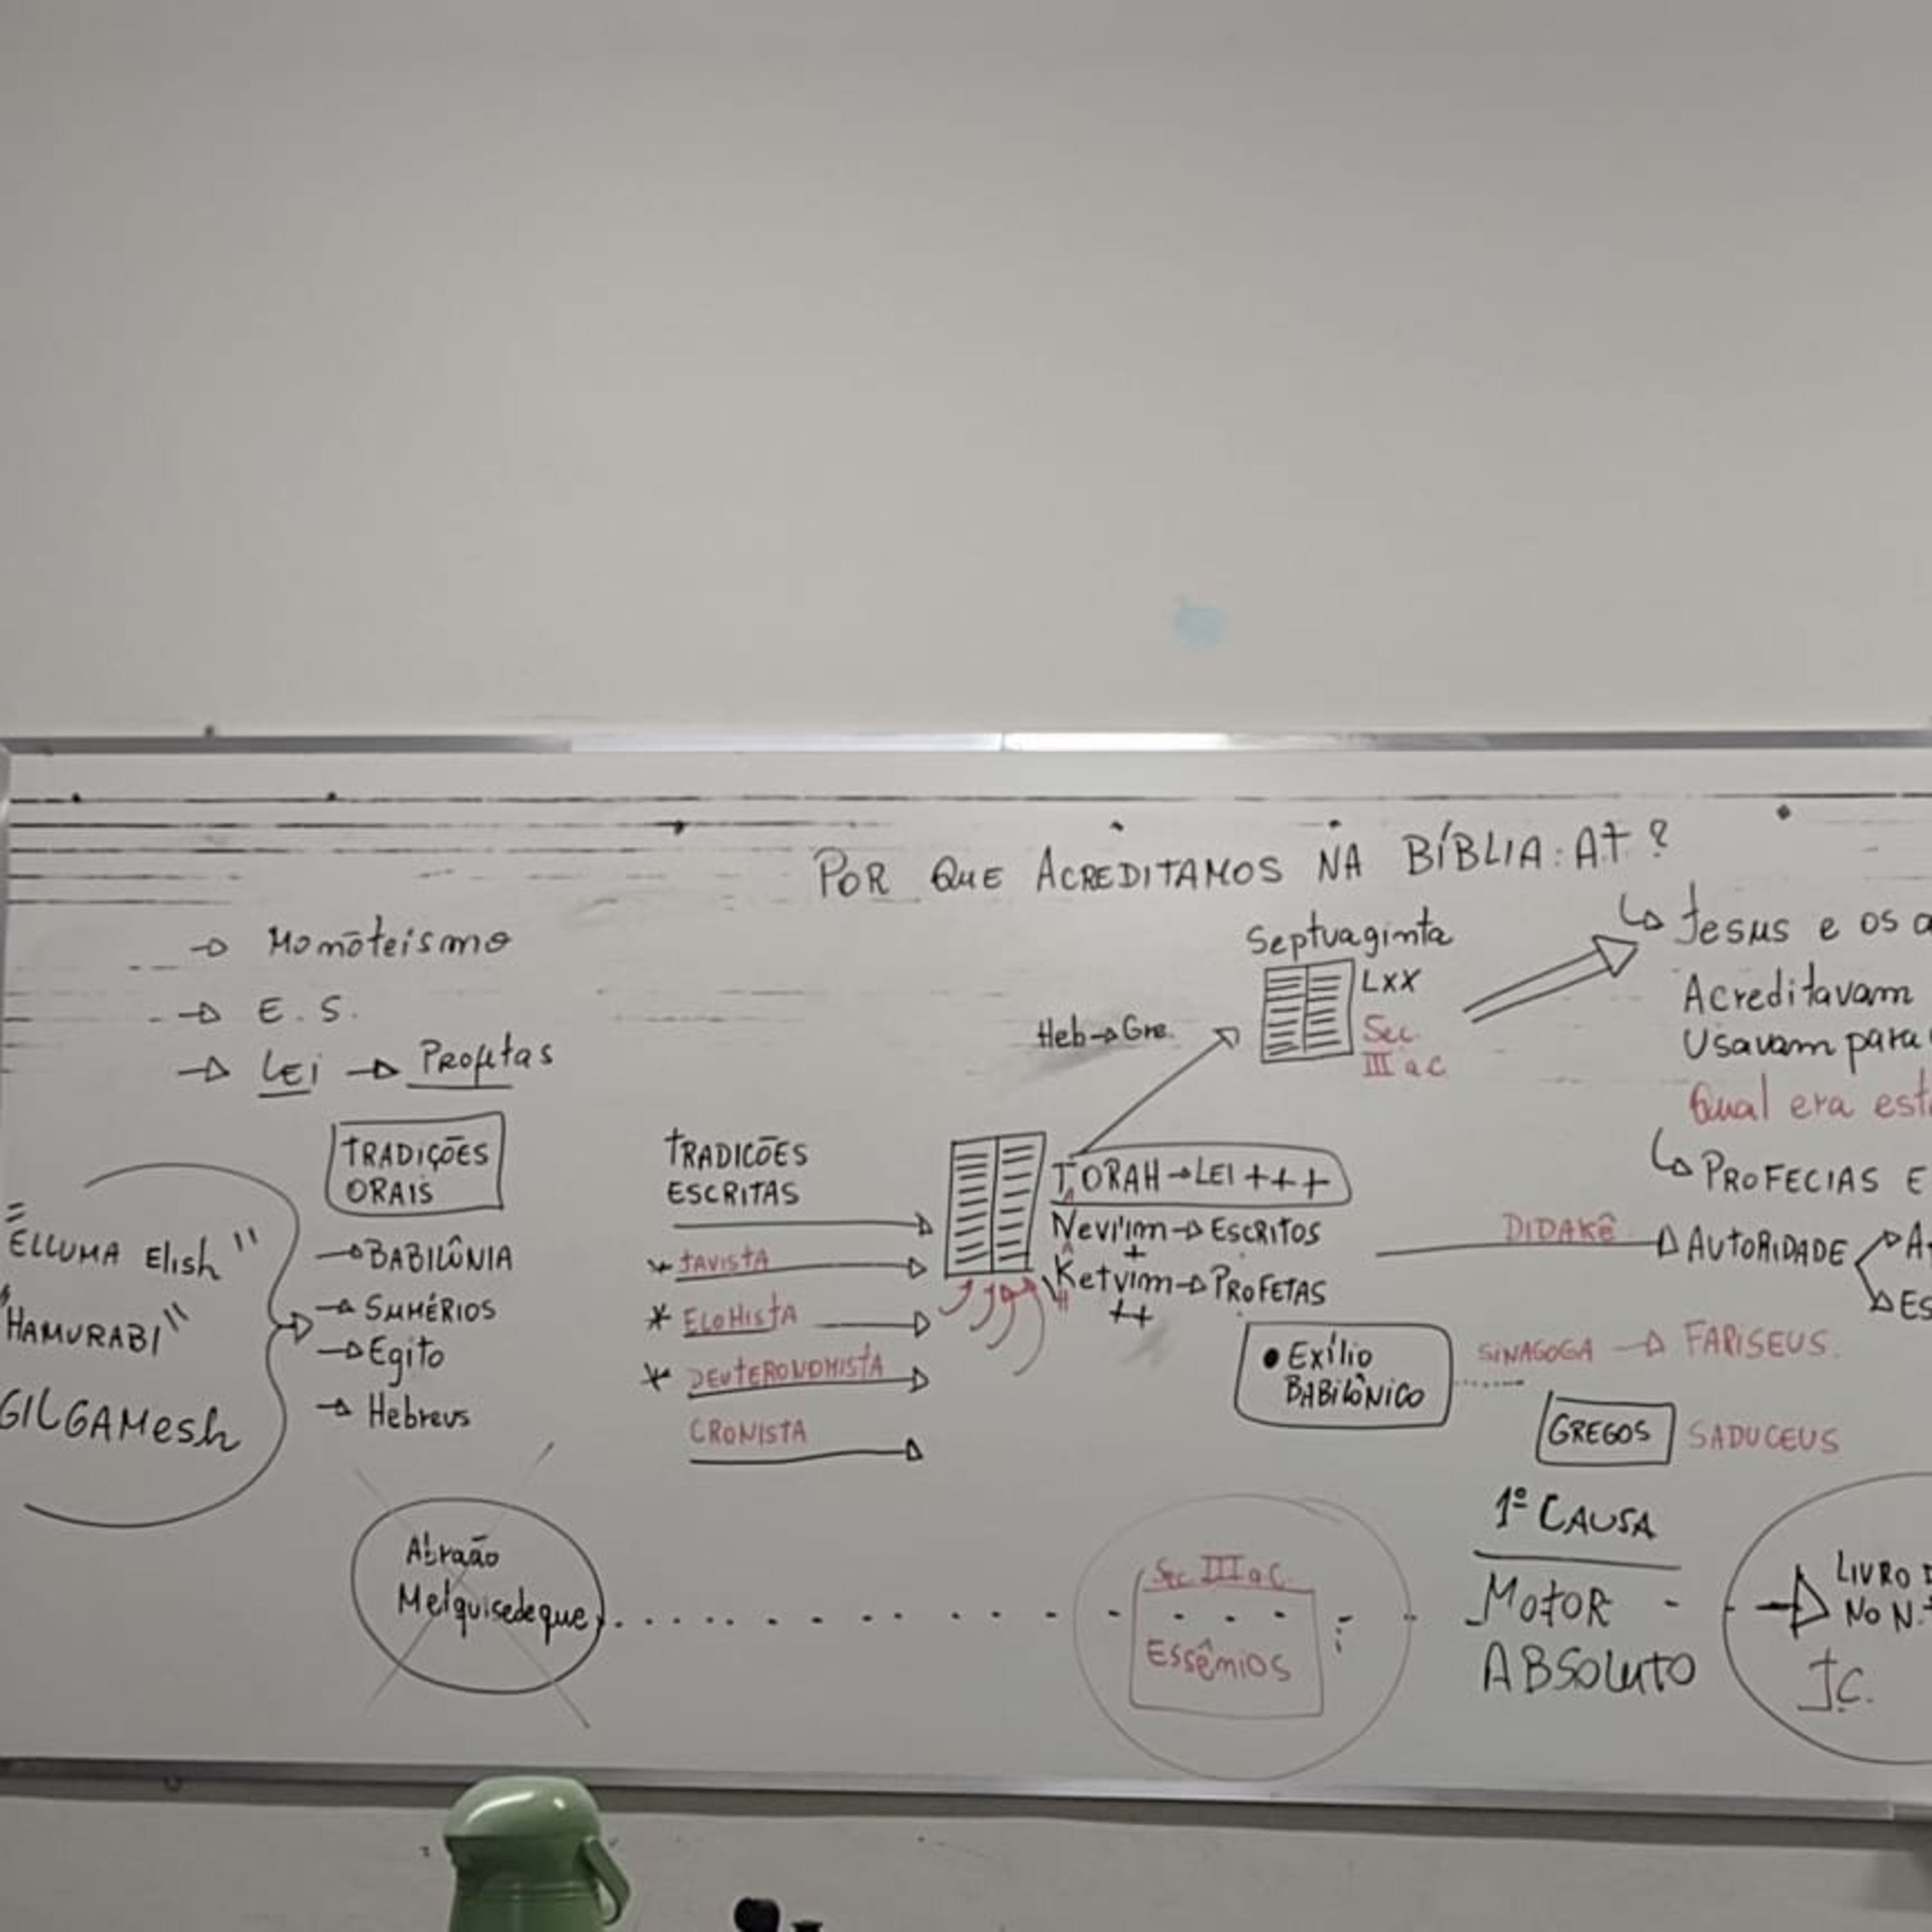 POR QUE ACREDITAMOS NA BÍBLIA: AT ?
→ Monoteísmo
→ E. S.
→ LEi → Profetas
"ELLUMA Elish"
"HAMURABI"
GILGAMesh
TRADIÇÕES
ORAIS
→ BABILÔNIA
→ SUMÉRIOS
→ Egito
→ Hebreus
Abraão
Melquisedeque
TRADICÕES
ESCRITAS
* JAVISTA
* ELOHISTA
* DEUTERONOMISTA
CRONISTA
Heb → Gre.
Septuaginta
LXX
Sec
III a C
TORAH → LEI +++
Nevi'im → ESCRITOS
+
Ketvim → PROFETAS
++
• Exílio
BABILÔNICO
Sec III a C.
ESSÊNIOS
↳ Jesus e os
Acreditavam
Usavam para
Qual era
↳ PROFECIAS E
DIDAKÊ → AUTORIDADE
SINAGOGA → FARISEUS.
GREGOS SADUCEUS
1º CAUSA
MOTOR
ABSOLUTO
→ LIVRO
NO N.T
J.C.